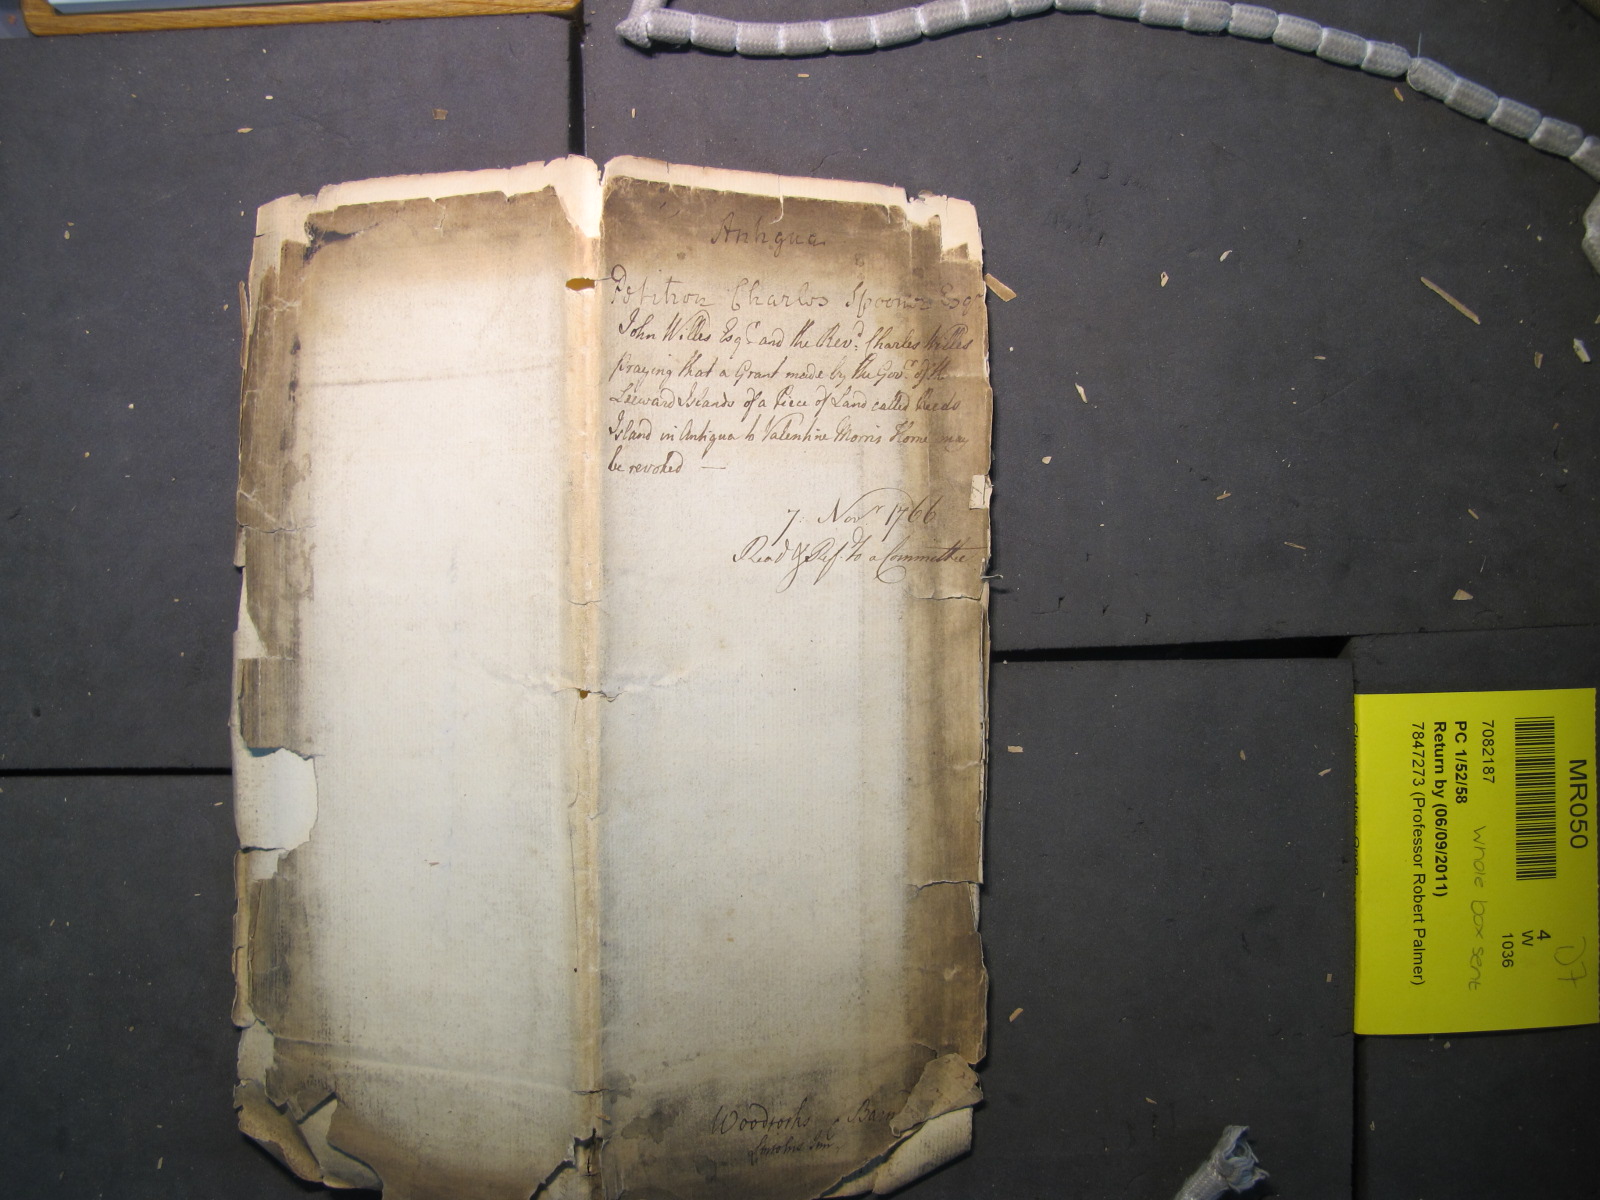 Antigua
Petition Charles Spooner Esqr
John Willes Esqr and the Revd: Charles Willes
praying that a Grant made by the Govr: of the
Leeward Islands of a Piece of Land called Reeds
Island in Antigua to Valentine Morris Horne may
be revoked —
7: Novr 1766
Read & Ref. to a Committee
Lincolns Inn
MR050
4
W
1036
7082187
whole box sent
PC 1/52/58
Return by (06/09/2011)
7847273 (Professor Robert Palmer)